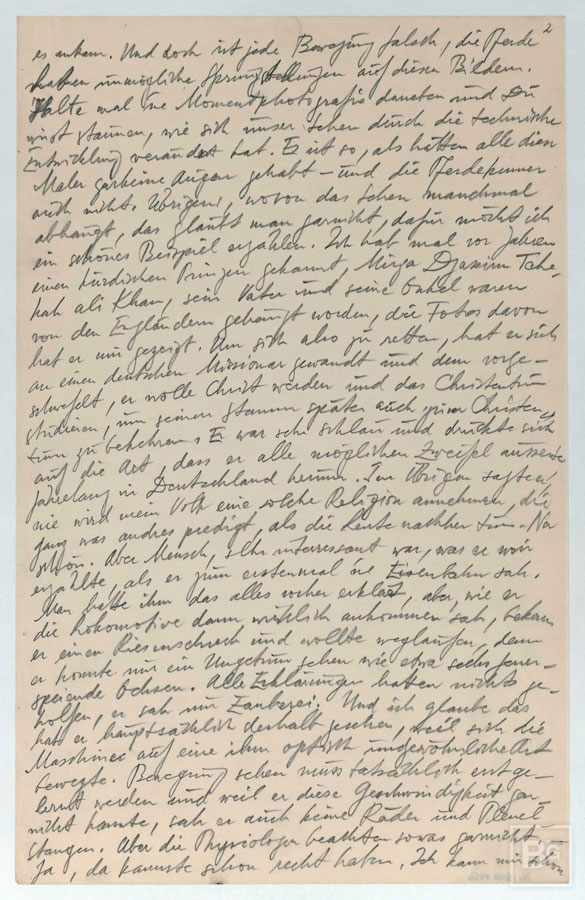 2
es ankam. Und doch ist jede Bewegung falsch, die Pferde
haben unmögliche Sprungstellungen auf diesen Bildern.
Halte mal ne Momentphotografie daneben und Du
wirst staunen, wie sich unser Sehen durch die technische
Entwicklung verändert hat. Es ist so, als hätten alle diese
Maler garkeine Augen gehabt – und die Pferdekenner
auch nicht. Übrigens, wovon das Sehen manchmal
abhängt, das glaubt man garnicht, dafür möcht ich
ein schönes Beispiel erzählen. Ich hab mal vor Jahren
einen kurdischen Prinzen gekannt, Mirza Djassim Tche-
kah Ali Khan, sein Vater und seine Onkel waren
von den Engländern gehängt worden, die Fotos davon
hat er mir gezeigt. Um sich also zu retten, hat er sich
an einen deutschen Missionar gewandt und dem vorge-
schwefelt, er wolle Christ werden und das Christentum
studieren, um seinen Stamm später auch zum Christen-
tum zu bekehren. Er war sehr schlau und drückte sich
auf die Art, dass er alle möglichen Zweifel äusserte
jahrelang in Deutschland herum. Im Übrigen sagte er,
nie wird mein Volk eine solche Religion annehmen, die
ganz was andres predigt, als die Leute nachher tun. Na
schön. Aber Mensch, sehr interessant war, was er mir
erzählte, als er zum erstenmal ne Eisenbahn sah.
Man hatte ihm das alles vorher erklärt, aber, wie er
die Lokomotive dann wirklich ankommen sah, bekam
er einen Riesenschreck und wollte weglaufen, denn
er konnte nur ein Ungetüm sehen wie etwa sechs feuer-
speiende Ochsen. Alle Erklärungen hatten nichts ge-
holfen, er sah nur Zauberei. Und ich glaube das
hat er hauptsächlich deshalb gesehen, weil sich die
Maschine auf eine ihm optisch ungewohnliche Art
bewegte. Bewegung sehen muss tatsächlich erst ge-
lernt werden und weil er diese Geschwindigkeit gar-
nicht kannte, sah er auch keine Räder und Pleuel
stangen. Aber die Physiologen beachten sowas garnicht.
Ja, da kannste schon recht haben. Ich kann mir schon
BG